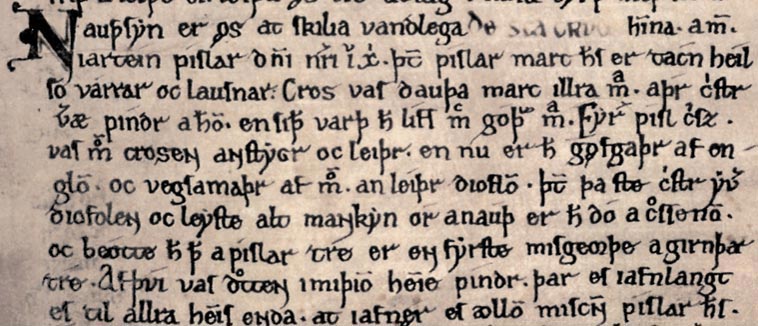 Nauþſyn er oſ at ſkilia vandlega de sca cruce hīna. a m̄.
iartein píſlar dn̄i n̄ri ıͮ x̄. þt̄ píſlar marc h̄ſ er tacn heil
ſo várrar oc lauſnar. Cros vaſ dauþa marc illra mᷓ. aþr c̓ſtr
v̓æ pindr a hō. en ſiþ varþ ħ lífſ mͨ goþᷓ mᷓ. Fyr̓ piſl c̓ſz.
vaſ mͦ croſen anſtygr oc leiþr. en nu er ħ gofgaþr af en
glō. oc vegſamaþr af mͦ. an leiþr dioflō. þt̄ þa ſte c̓ſtr yv̓
diofolen oc leyſte alt mankyn or anauþ er ħ dó a cͦſſenō.
oc beotte ħ þ̄ a piſlar tre er en fyrſte miſgeorþe a girnþar
tre. Af þvi vaſ dͦtten i miþiō heīe pindr. þar eſ iafnlangt
eſ til allra heīſ enda. at iafner eſ ollō miſcn̄ piſlar h̄ſ.